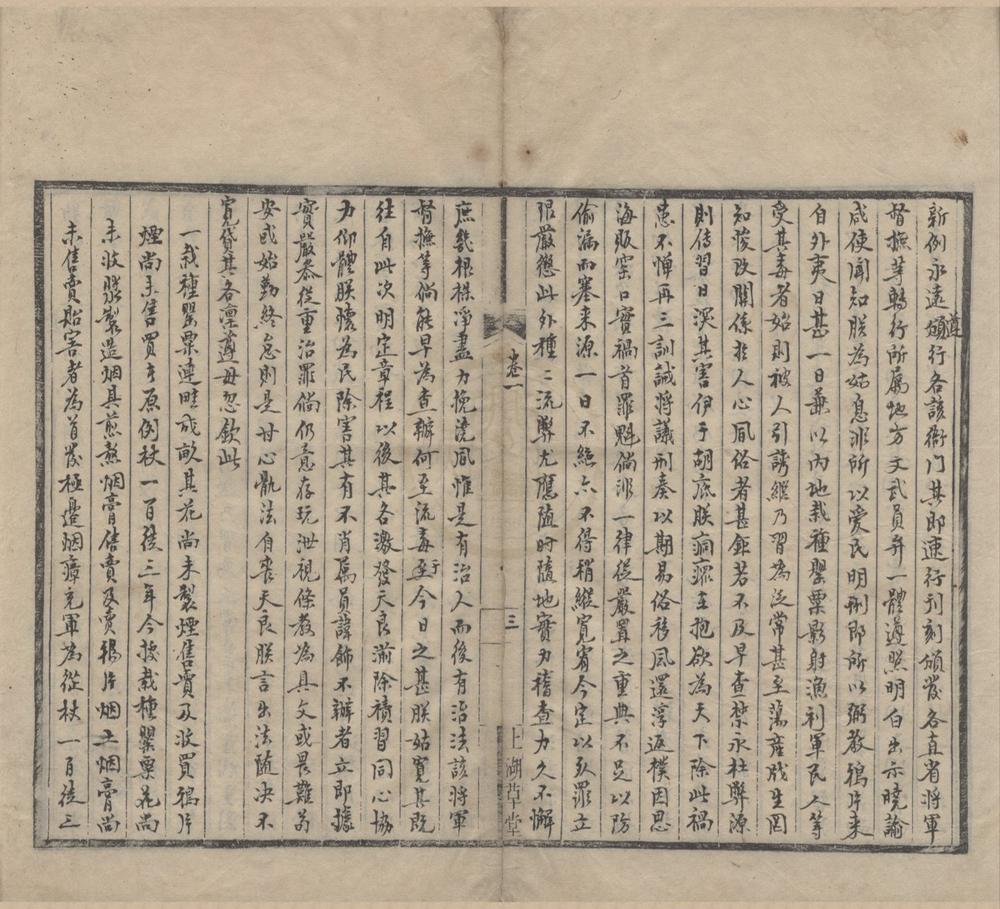 新例永遠遵
頒行各該衙門其即速行刊刻頒發各直省將軍
督撫等轉行所屬地方文武員弁一體遵照明白出示曉諭
咸使聞知朕為姑息非所以愛民明刑即所以弼教鴉片來
自外夷日甚一日兼以內地栽種罌粟影射漁利軍民人等
受其毒者始則被人引誘繼乃習為泛常甚至蕩產戕生罔
知悛改關係於人心風俗者甚鉅若不及早查禁永杜弊源
則傳習日深其害伊于胡底朕痌瘝在抱欲為天下除此禍
患不憚再三訓誡將議刑奏以期易俗移風還淳返樸因思
海販窯口實禍首罪魁倘非一律從嚴置之重典不足以防
偷漏而塞來源一日不絕亦不得稍縱寬宥今定以死罪立
限嚴懲此外種種流弊尤應隨時隨地實力稽查力久不懈
卷一
三
上湖草堂
庶幾根株淨盡力挽澆風惟是有治人而後有治法該將軍
督撫等倘能早為查辦何至流毒至于今日之甚朕姑寬其既
往自此次明定章程以後其各激發天良湔除積習同心協
力仰體朕懷為民除害其有不肖屬員諱飾不辦者立即據
實嚴參從重治罪倘仍意存玩泄視條教為具文或畏難苟
安或始勤終怠則是甘心骫法自喪天良朕言出法隨決不
寬貸其各凜遵毋忽欽此
一栽種罌粟連畦成畝其花尚未製煙售賣及收買鴉片
煙尚未售買者原例杖一百徒三年今擬栽種罌粟花尚
未收漿製造烟具煎熬烟膏售賣及賣鴉片烟土烟膏尚
未售賣貽害者為首發極邊烟瘴充軍為從杖一百徒三